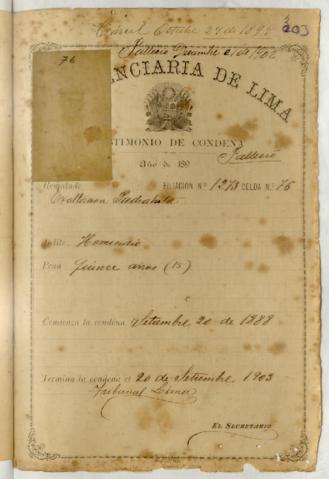 Carcel Octubre 24 de 1895
203
Fallecio Diciembre 21 de 1902
76
ENCIARIA DE LIMA
STIMONIO DE CONDENA
Año de 189
Fallecio
Rematado FILIACION N.º 1278 CELDA N.º 76
Baltazara Piedrahita
Delito Homicidio
Pena Quince años (15)
Comienza la condena Setiembre 20 de 1888
Termina la condena el 20 de Setiembre 1903
Tribunal Lima
EL SECRETARIO